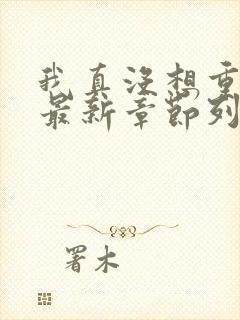 我真没想重
最新章节列
署木